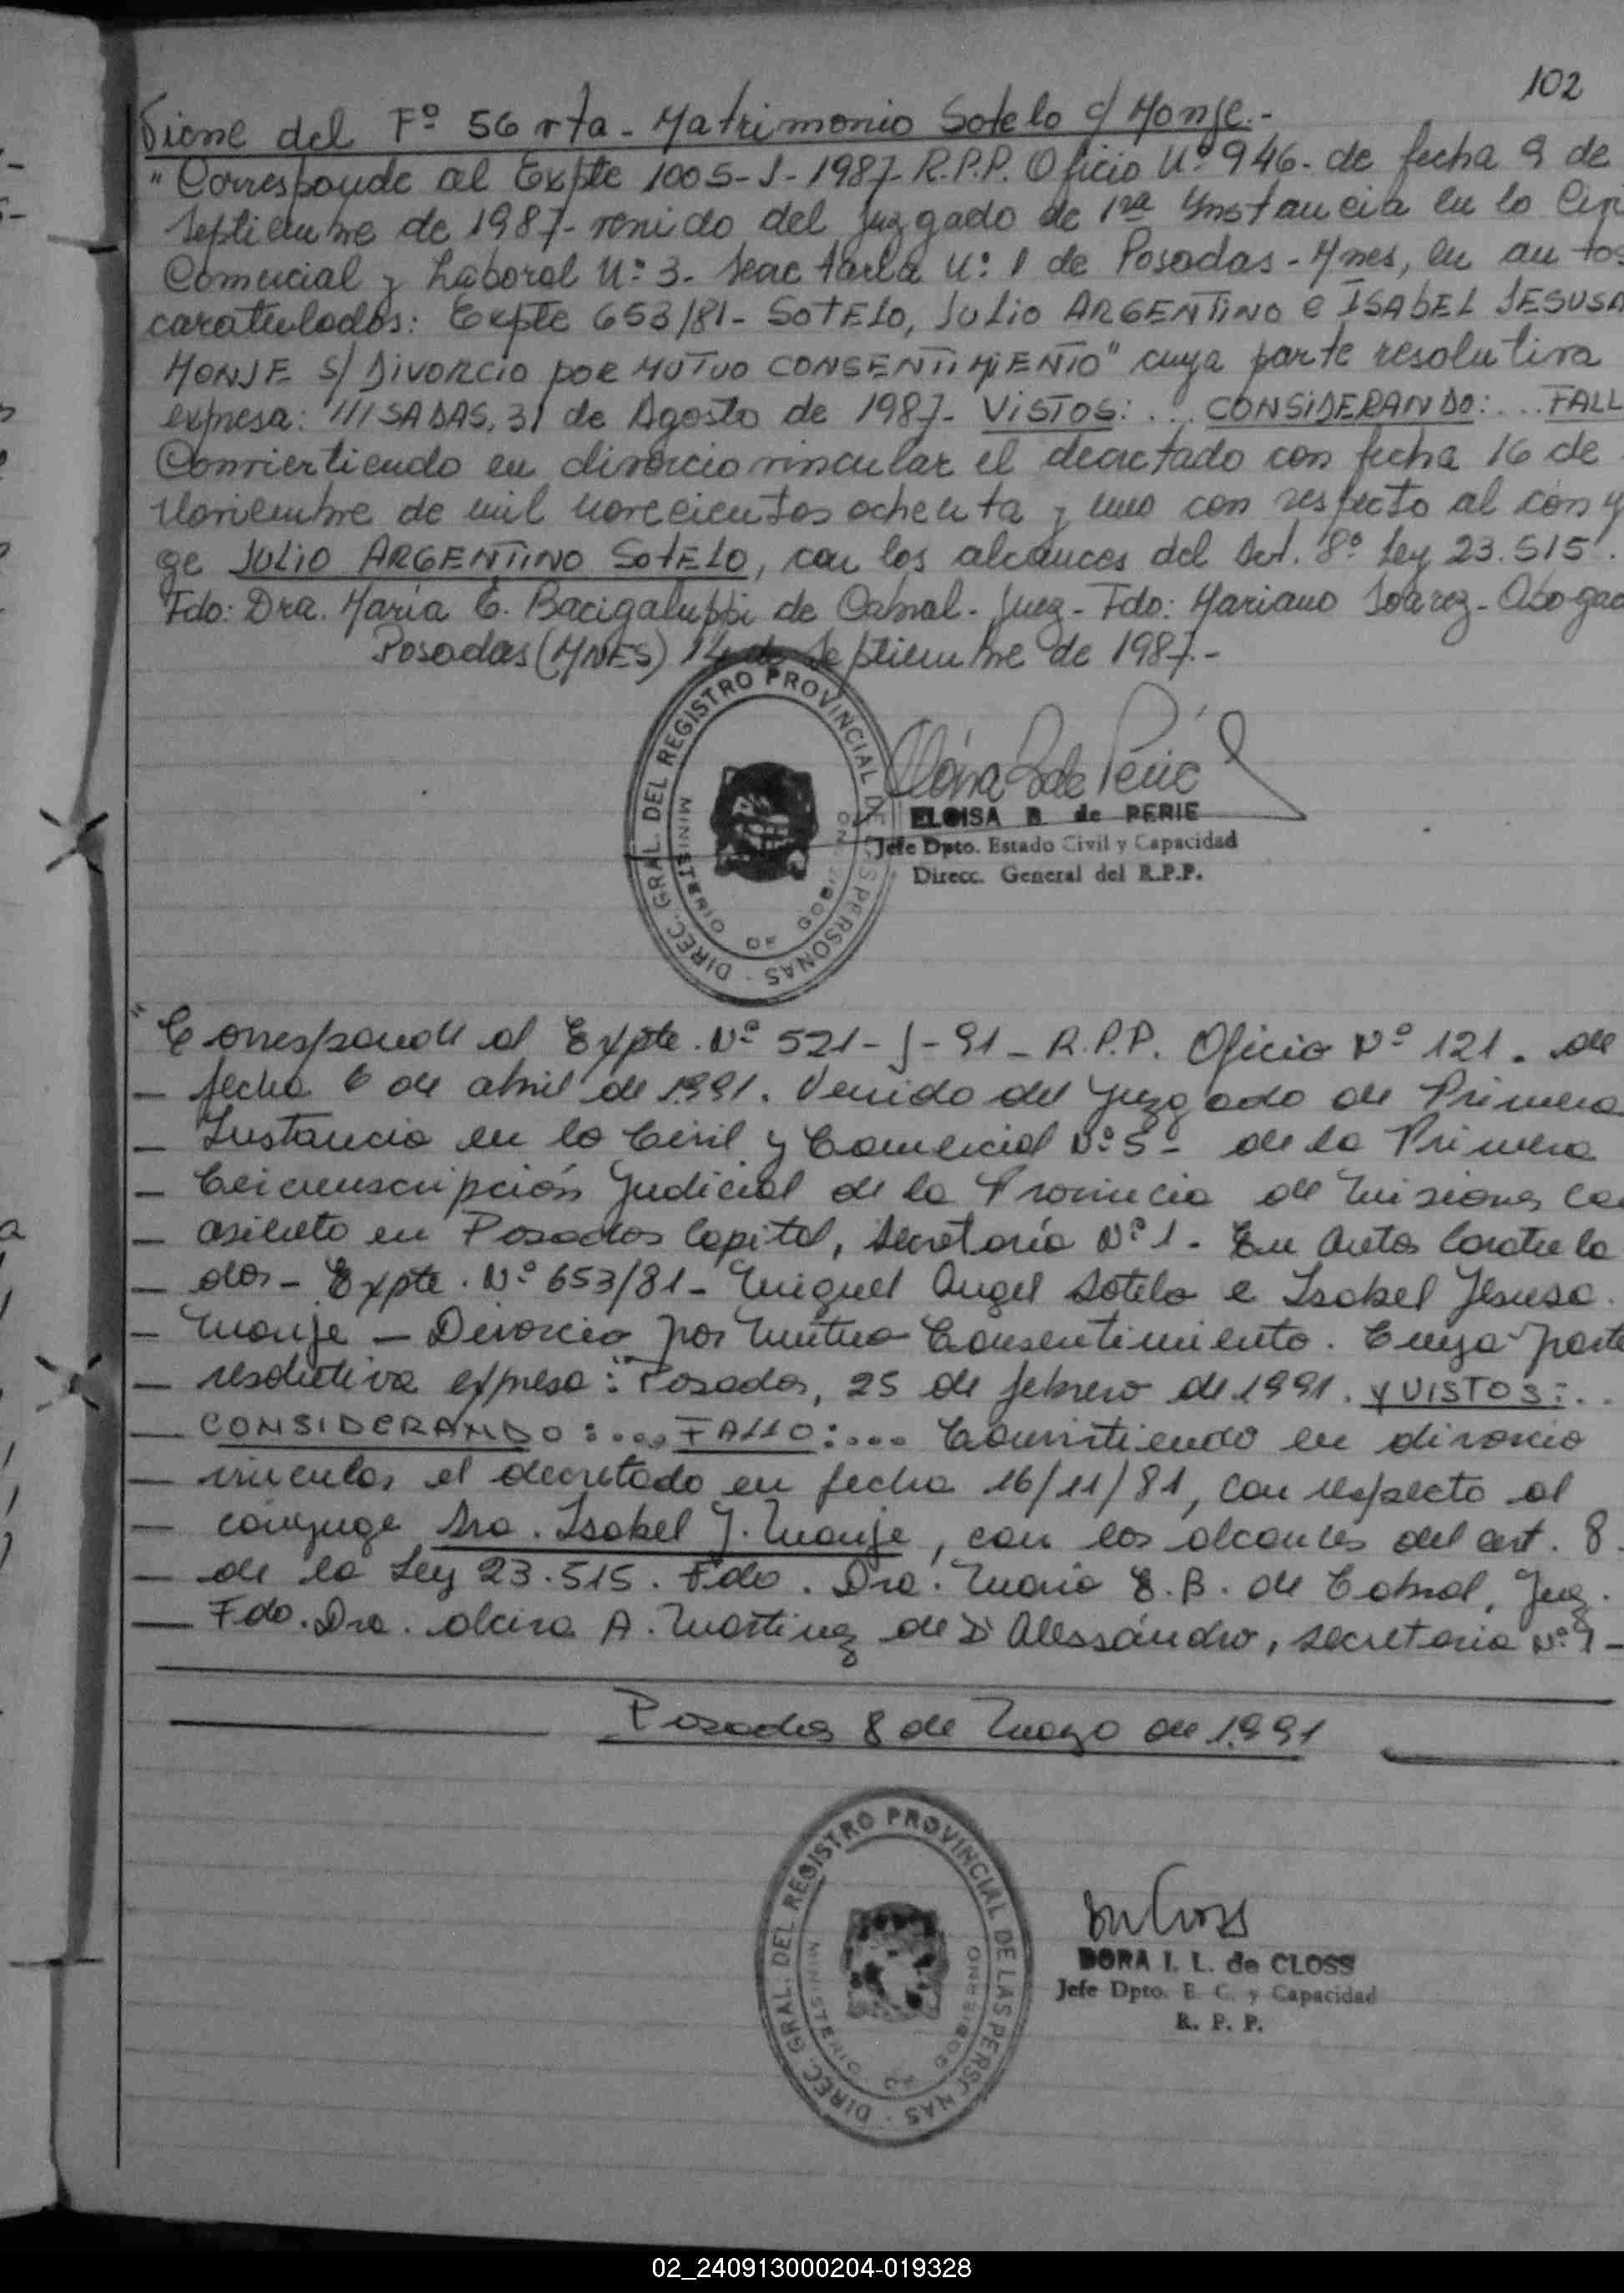 102
Viene del Fº 56 vta - Matrimonio Sotelo c/ Monje.-
"Corresponde al Expte 1005-J-1987- R.P.P. Oficio Nº 946- de fecha 9 de
Septiembre de 1987- venido del Juzgado de 1ra Instancia en lo Civ
Comercial y Laboral Nº 3- Secretaria Nº 1 de Posadas - Mnes, en autos
caratulados: Expte 653/81- SOTELO, JULIO ARGENTINO e ISABEL JESUSA
MONJE S/ DIVORCIO POR MUTUO CONSENTIMIENTO" cuya parte resolutiva
expresa: "///SADAS, 31 de Agosto de 1987- VISTOS: ... CONSIDERANDO: ... FALL
Conviertiendo en divorcio vincular el decretado con fecha 16 de
Noviembre de mil novecientos ochenta y uno con respecto al cónyu
ge JULIO ARGENTINO SOTELO, con los alcances del Art. 8º Ley 23.515".
Fdo: Dra. María E. Bacigaluppi de Cabral - Juez - Fdo: Mariano Soarez - Abogad
Posadas (MNES) 14 de Septiembre de 1987.-
DIREC. GRAL. DEL REGISTRO PROVINCIAL DE LAS PERSONAS
MINISTERIO DE GOBIERNO
ELOISA B de PERIE
Jefe Dpto. Estado Civil y Capacidad
Direcc. General del R.P.P.
"Corresponde al Expte. Nº 521-J-91- R.P.P. Oficio Nº 121. de
— fecha 6 de abril de 1991. Venido del Juzgado de Primera
— Instancia en lo Civil y Comercial Nº 5- de la Primera
— Circunscripción Judicial de la Provincia de Misiones co
— asiento en Posadas Capital, Secretaría Nº 1- En Autos Caratula
— dos- Expte. Nº 653/81- Miguel Angel Sotelo e Isabel Jesusa.
— Monje — Divorcio por Mutuo Consentimiento. Cuya parte
— resolutiva expresa: "Posadas, 25 de febrero de 1991. Y VISTOS:..
— CONSIDERANDO:.... FALLO:.... Convirtiendo en divorcio
— vincular el decretado en fecha 16/11/81, con respecto al
— cónyuge Sra. Isabel J. Monje, con los alcances del art. 8.
— de la Ley 23.515. Fdo. Dra. Maria E. B. de Cabral, Juez.
— Fdo. Dra. Alcira A. Martinez de D'Alessándro, secretaria Nº 1-
Posadas 8 de Mayo de 1.991
DIREC. GRAL. DEL REGISTRO PROVINCIAL DE LAS PERSONAS
MINISTERIO DE GOBIERNO
DORA I. L. de CLOSS
Jefe Dpto. E. C. y Capacidad
R. P. P.
02_240913000204-019328